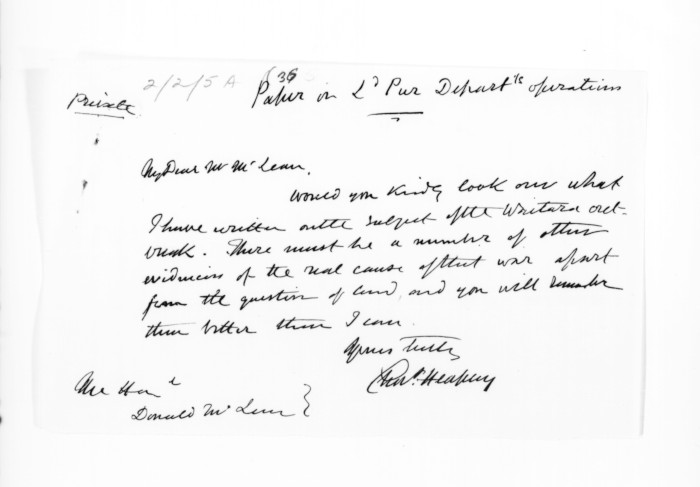 2/2/5A 36
Private Paper on Ld Pur Departts operations
My Dear Mr McLean,
Would you kindly look over what
I have written on the subject of the Waitara out-
break. There must be a number of other
evidences of the real cause of that war apart
from the question of land, and you will remember
them better than I can.
Yours truly
Chas. Heaphy
The Honl
Donald McLean